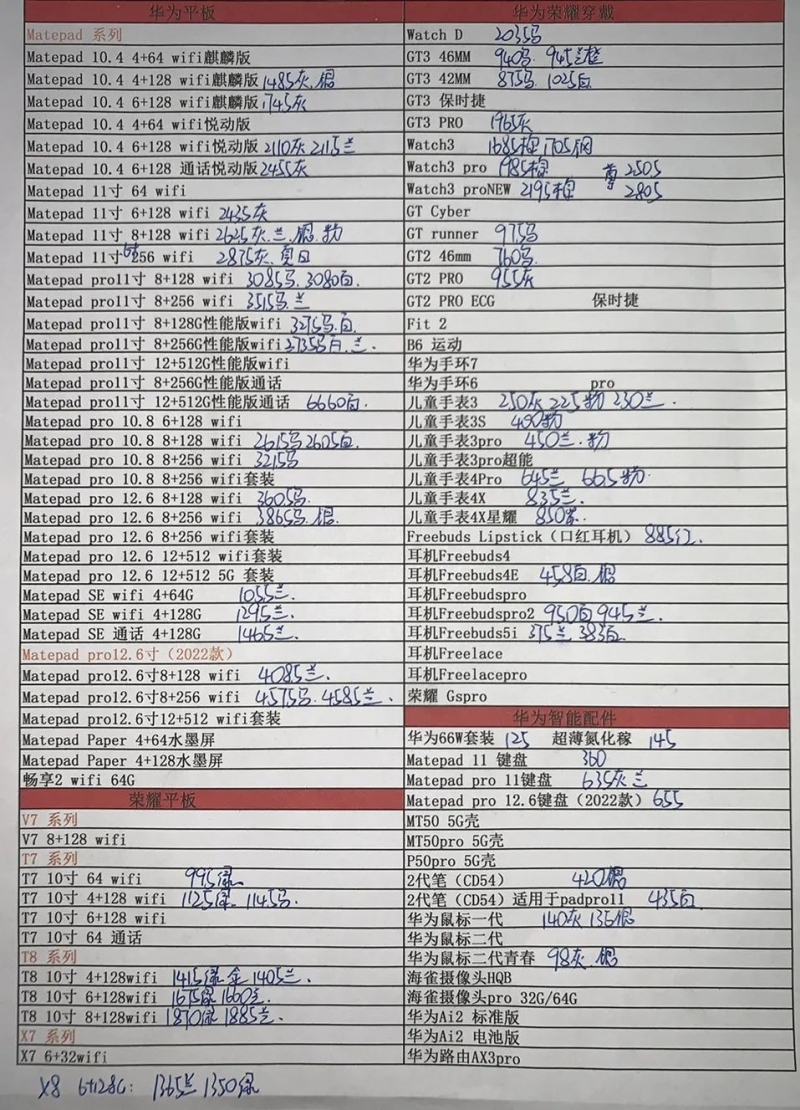 华为平板
Matepad 系列
Matepad 10.4 4+64 wifi麒麟版
Matepad 10.4 4+128 wifi麒麟版 1485灰.银
Matepad 10.4 6+128 wifi麒麟版 1745灰
Matepad 10.4 4+64 wifi悦动版
Matepad 10.4 6+128 wifi悦动版 2110灰 2115兰
Matepad 10.4 6+128 通话悦动版 2455灰
Matepad 11寸 64 wifi
Matepad 11寸 6+128 wifi 2435灰
Matepad 11寸 8+128 wifi 2625灰.兰.银.粉
Matepad 11寸 6+256 wifi 2875灰.
Matepad pro11寸 8+128 wifi 3085马.3080白.
Matepad pro11寸 8+256 wifi 3515马.兰
Matepad pro11寸 8+128G性能版wifi 3275马.白.
Matepad pro11寸 8+256G性能版wifi 3735马白.兰.
Matepad pro11寸 12+512G性能版wifi
Matepad pro11寸 8+256G性能版通话
Matepad pro11寸 12+512G性能版通话 6660白.
Matepad pro 10.8 6+128 wifi
Matepad pro 10.8 8+128 wifi 2615马2605白
Matepad pro 10.8 8+256 wifi 3215马
Matepad pro 10.8 8+256 wifi套装
Matepad pro 12.6 8+128 wifi 3605马.
Matepad pro 12.6 8+256 wifi 3865马.银.
Matepad pro 12.6 8+256 wifi套装
Matepad pro 12.6 12+512 wifi套装
Matepad pro 12.6 12+512 5G 套装
Matepad SE wifi 4+64G 1055兰.
Matepad SE wifi 4+128G 1295兰.
Matepad SE 通话 4+128G 1465兰.
Matepad pro12.6寸(2022款)
Matepad pro12.6寸8+128 wifi 4085兰.
Matepad pro12.6寸8+256 wifi 4575马.4585兰.
Matepad pro12.6寸12+512 wifi套装
Matepad Paper 4+64水墨屏
Matepad Paper 4+128水墨屏
畅享2 wifi 64G
荣耀平板
V7 系列
V7 8+128 wifi
T7 系列
T7 10寸 64 wifi 995绿
T7 10寸 4+128 wifi 1125绿 1145马.
T7 10寸 6+128 wifi
T7 10寸 64 通话
T8 系列
T8 10寸 4+128wifi 1415绿金 1405兰.
T8 10寸 6+128wifi 1675绿 1660兰.
T8 10寸 8+128wifi 1870绿 1885兰.
X7 系列
X7 6+32wifi
X8 6+128G: 1365兰 1350绿
华为荣耀穿戴
Watch D 2035马
GT3 46MM 940马. 945兰
GT3 42MM 875马. 1025白
GT3 保时捷
GT3 PRO 1965灰
Watch3 1685棕 1705钢
Watch3 pro 1985棕 尊 2505
Watch3 proNEW 2195棕 2805
GT Cyber
GT runner 975马
GT2 46mm 760马.
GT2 PRO 955灰
GT2 PRO ECG 保时捷
Fit 2
B6 运动
华为手环7
华为手环6 pro
儿童手表3 250灰 225粉 230兰.
儿童手表3S 490粉
儿童手表3pro 450兰.粉
儿童手表3pro超能
儿童手表4Pro 645兰 665粉.
儿童手表4X 835兰.
儿童手表4X星耀 850
Freebuds Lipstick(口红耳机) 885红.
耳机Freebuds4
耳机Freebuds4E 458白.银
耳机Freebudspro
耳机Freebudspro2 950白 945兰.
耳机Freebuds5i 375兰 383白.
耳机Freelace
耳机Freelacepro
荣耀 Gspro
华为智能配件
华为66W套装 125 超薄氮化稼 145
Matepad 11 键盘 360
Matepad pro 11键盘 635灰兰
Matepad pro 12.6键盘(2022款) 655
MT50 5G壳
MT50pro 5G壳
P50pro 5G壳
2代笔(CD54) 420银
2代笔(CD54)适用于padpro11 435白
华为鼠标一代 140灰 136银
华为鼠标二代
华为鼠标二代青春 98灰.银
海雀摄像头HQB
海雀摄像头pro 32G/64G
华为Ai2 标准版
华为Ai2 电池版
华为路由AX3pro